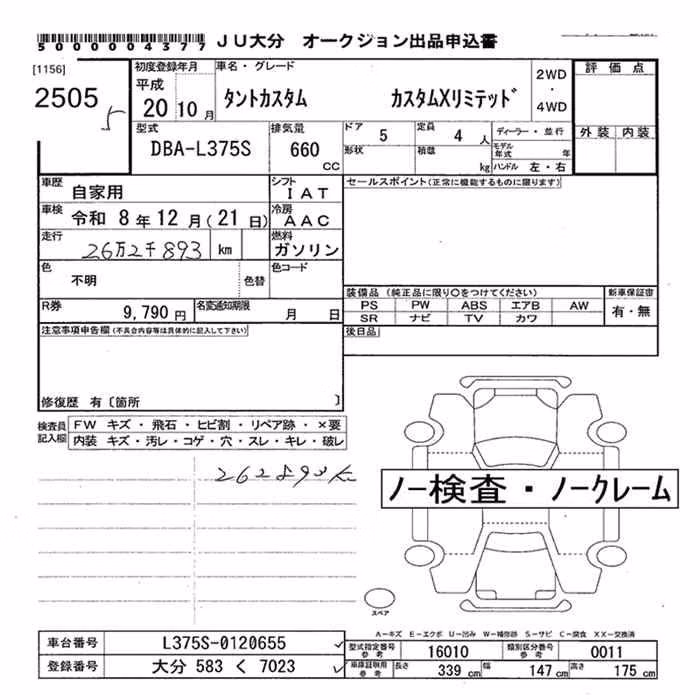 500004377
JU大分 オークション出品申込書
[1156]
2505
初度登録年月
平成
20 10 月
車名・グレード
タントカスタム カスタムXリミテッド
2WD
・
4WD
評価点
外装 内装
型式
DBA-L375S
排気量
660
CC
ドア 5
定員 4 人
形状
積載 kg
ディーラー・並行
モデル年式 年
ハンドル 左・右
車歴
自家用
シフト
IAT
車検
令和 8 年 12 月 (21 日)
冷房
AAC
走行
26万2千893 km
燃料
ガソリン
色
不明
色替
色コード
R券
9,790 円
名変通知期限
月 日
セールスポイント(正常に機能するものに限ります)
装備品 (純正品に限り○をつけてください)
PS PW ABS エアB AW
SR ナビ TV カワ
新車保証書
有・無
後日品
注意事項申告欄(不具合内容等は具体的に記入して下さい)
修復歴 有〔箇所 〕
検査員
記入欄
FW キズ・飛石・ヒビ割・リペア跡・×要
内装 キズ・汚レ・コゲ・穴・スレ・キレ・破レ
262893K
ノー検査・ノークレーム
スペア
A-キズ E-エクボ U-凹み W-補修跡 S-サビ C-腐食 XX-交換済
車台番号 L375S-0120655
登録番号 大分 583 く 7023
型式指定番号
参考
16010
類別区分番号
参考
0011
車庫証明用
参考
長さ 339 cm 幅 147 cm 高さ 175 cm